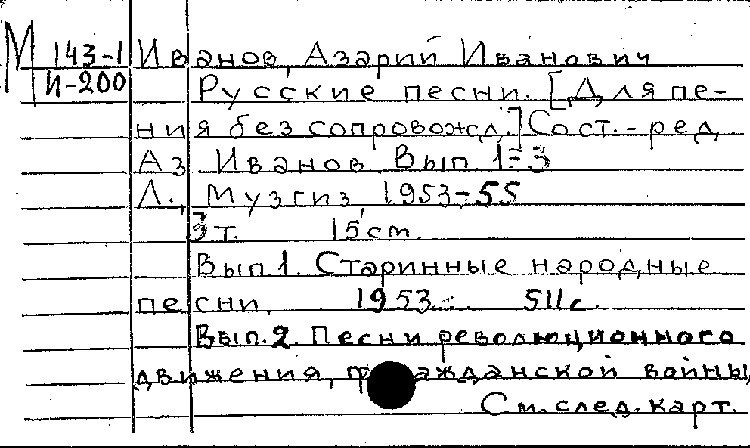 М 143-1 Иванов, Азарий Иванович
И-200 Русские песни. [Для пе-
ния без сопровожд.] Сост.-ред.
Аз Иванов Вып 1-3
Л., Музгиз 1953-55
3т. 15см.
Вып 1. Старинные народные
песни, 1953. 511с.
Вып. 2. Песни революционного
движения, гражданской войны,
См. след. карт.